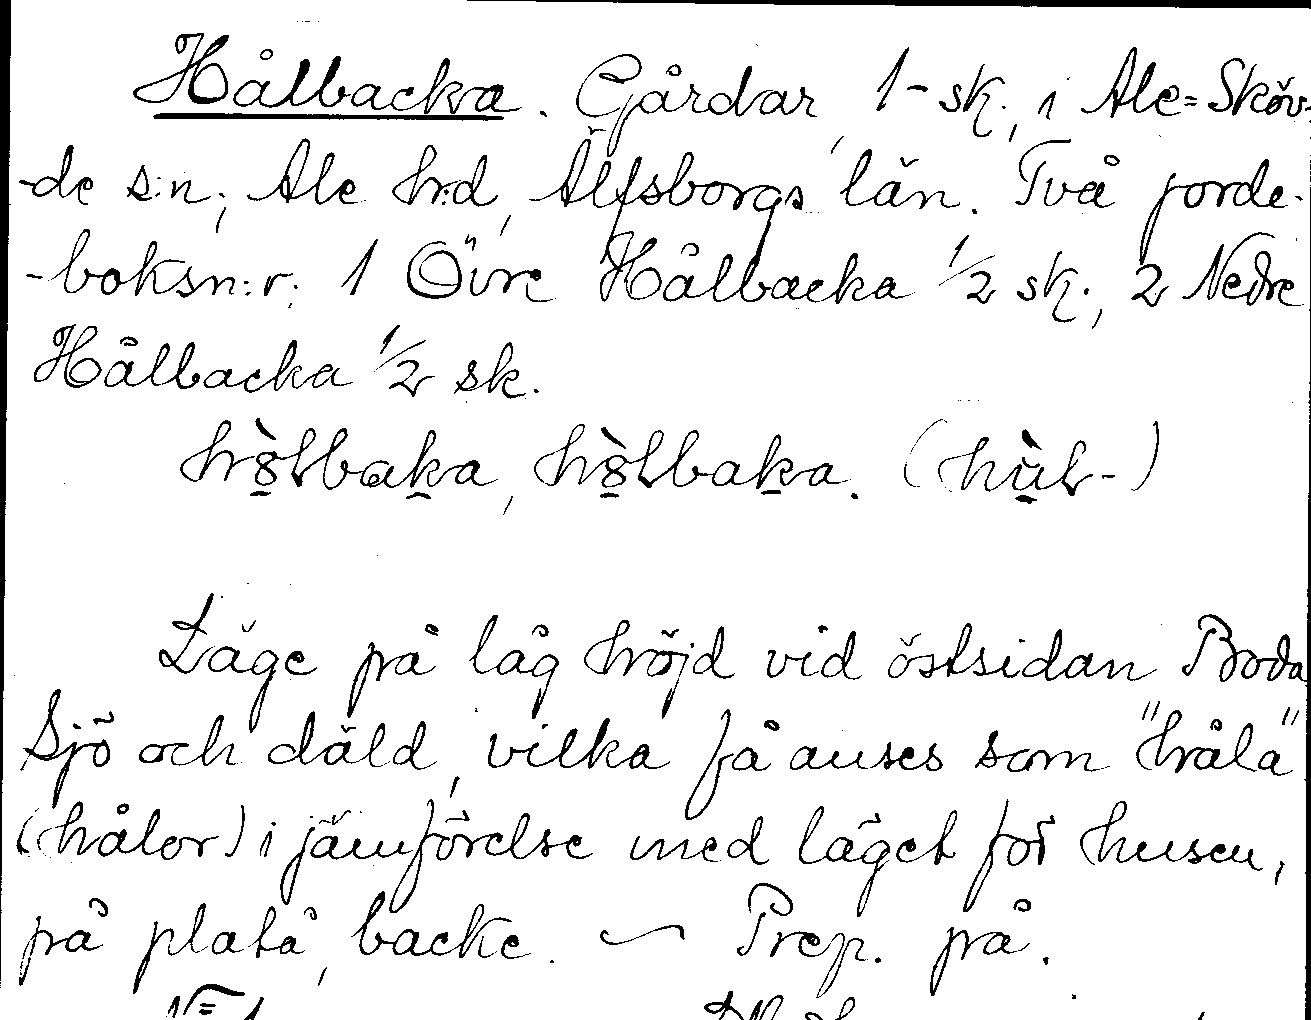 Hålbacka. Gårdar, 1 - sk., i Ale=Sköv-
-de s:n, Ale hrd, Älfsborgs län. Två jorde-
-boksn:r: 1 Övre Hålbacka 1/2 sk., 2 Nedre
Hålbacka 1/2 sk.
(hùl-)
Läge på låg höjd vid östsidan Boda
Sjö och däld, vilka få anses som "håla"
(hålor) i jämförelse med läget för husen,
på platå, backe. — Prep. på.